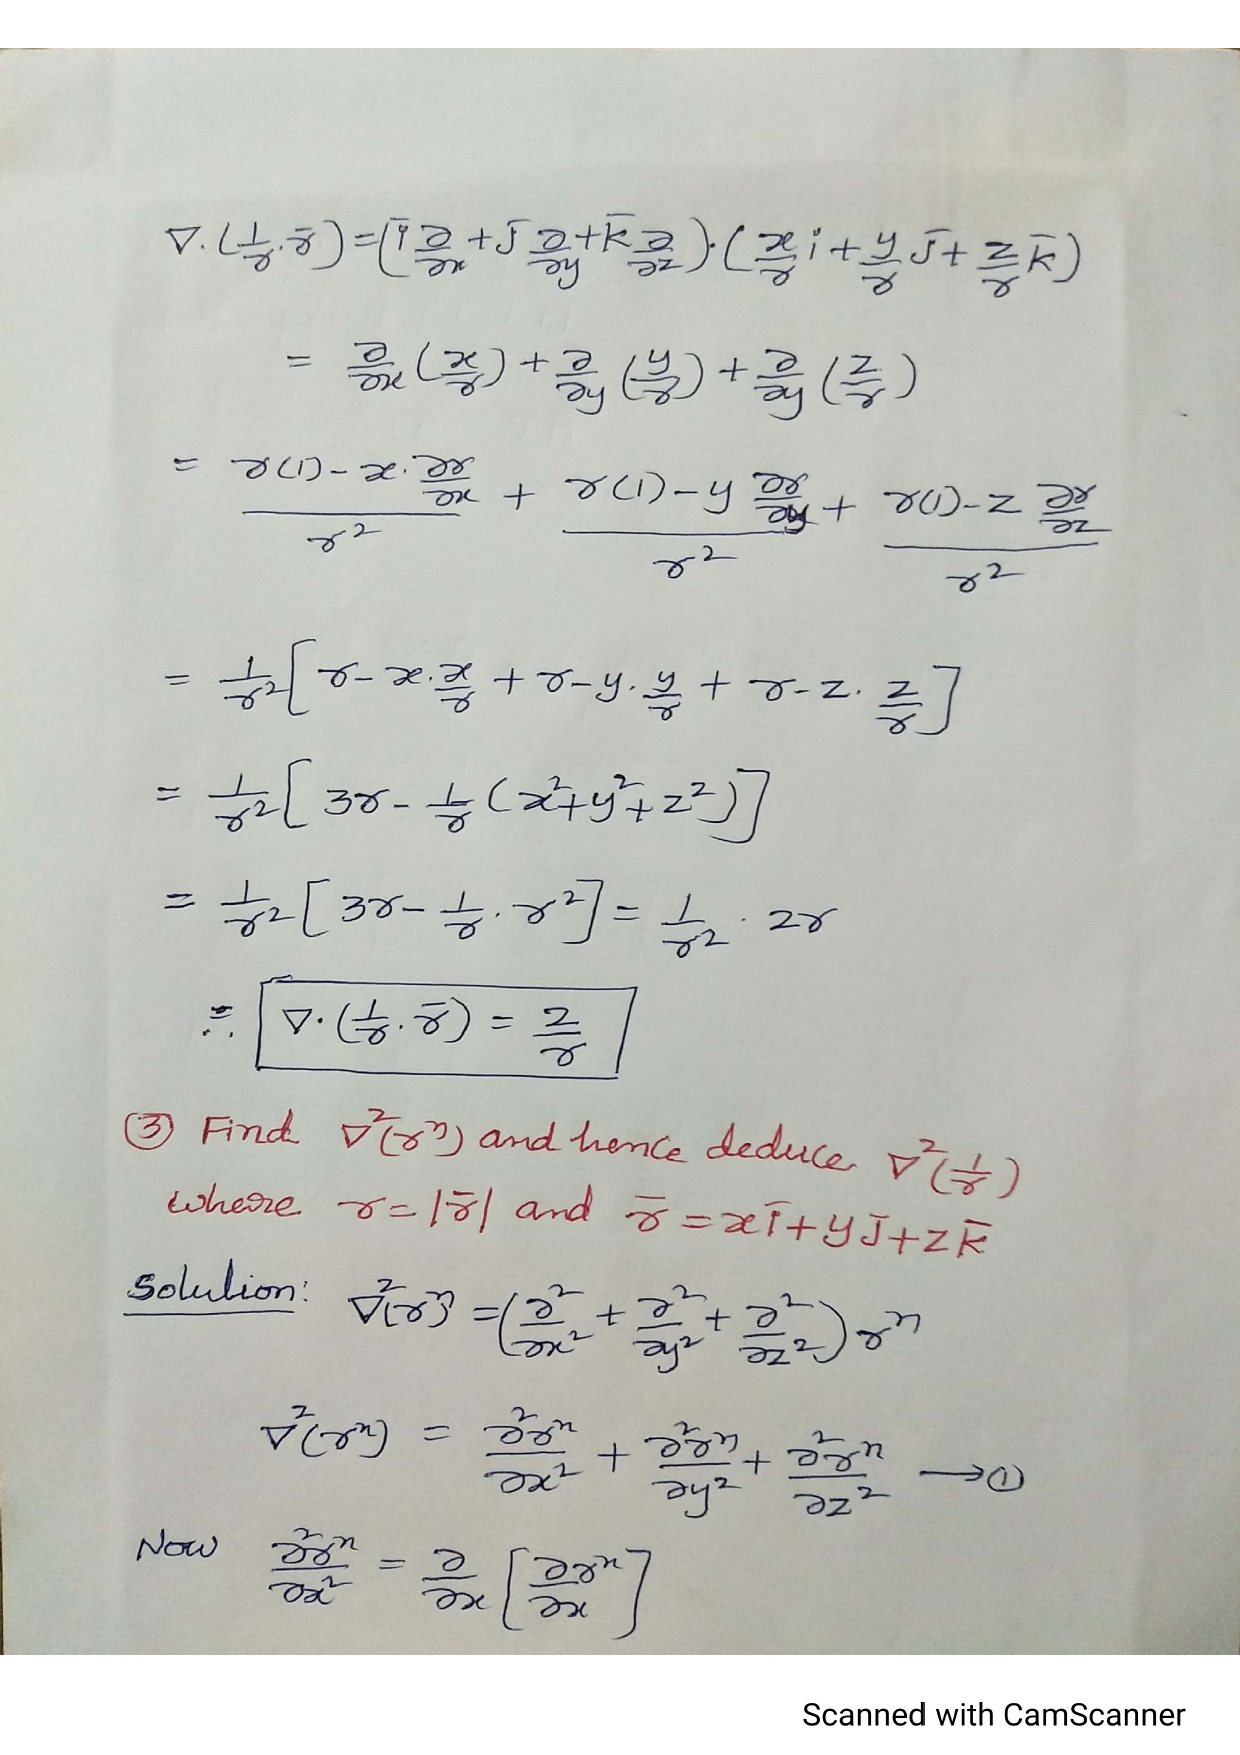 ∇.(1/r . r̄) = (ī ∂/∂x + j̄ ∂/∂y + k̄ ∂/∂z).(x/r i + y/r j̄ + z/r k̄)
= ∂/∂x (x/r) + ∂/∂y (y/r) + ∂/∂y (z/r)
= (r(1) - x . ∂r/∂x)/r² + (r(1) - y ∂r/∂y)/r² + (r(1) - z ∂r/∂z)/r²
= 1/r² [r - x . x/r + r - y . y/r + r - z . z/r]
= 1/r² [3r - 1/r (x² + y² + z²)]
= 1/r² [3r - 1/r . r²] = 1/r² . 2r
∴ ∇.(1/r . r̄) = 2/r
③ Find ∇²(rⁿ) and hence deduce ∇²(1/r)
where r = |r̄| and r̄ = xī + yj̄ + zk̄
Solution: ∇²(rⁿ) = (∂²/∂x² + ∂²/∂y² + ∂²/∂z²) rⁿ
∇²(rⁿ) = ∂²rⁿ/∂x² + ∂²rⁿ/∂y² + ∂²rⁿ/∂z² → ①
Now ∂²rⁿ/∂x² = ∂/∂x [∂rⁿ/∂x]
Scanned with CamScanner